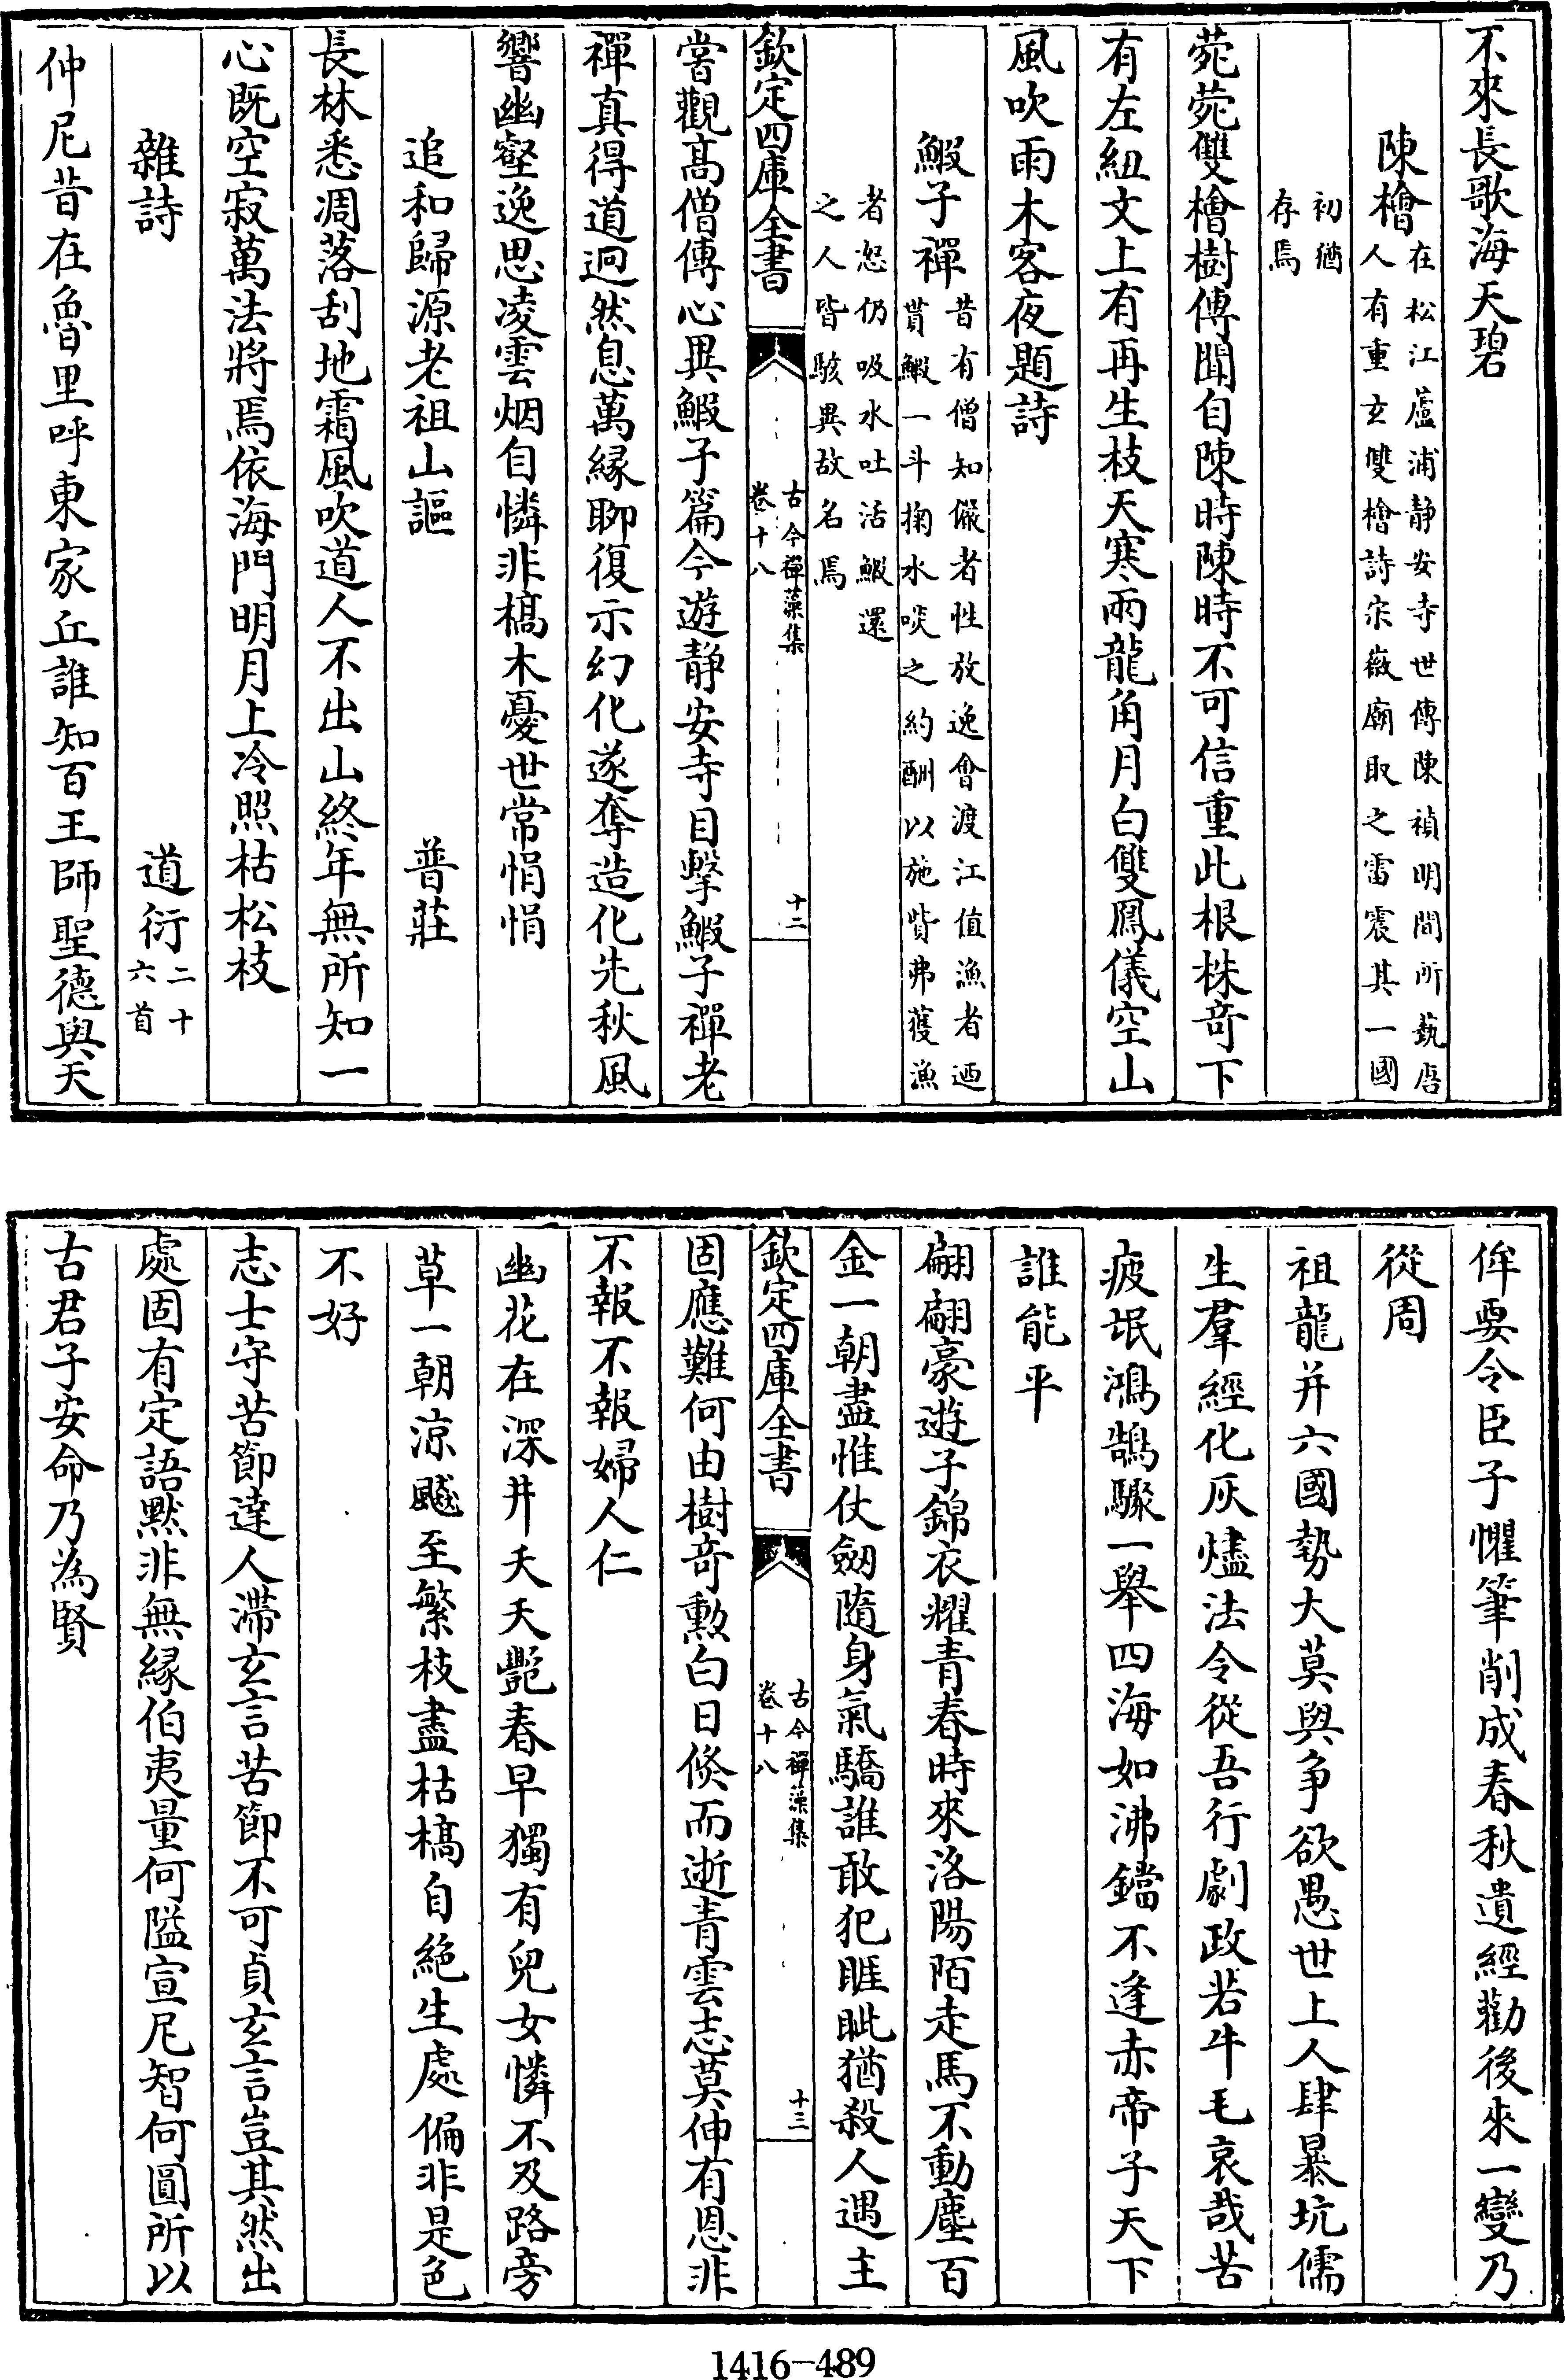 不來長歌海天碧
陳檜
在松江蘆浦静安寺世傳陳禎明間所蓺唐
人有重玄雙檜詩宋徽廟取之雷震其一國
初猶
存焉
菀菀雙檜樹傳聞自陳時陳時不可信重此根株竒下
有左紐文上有再生枝天寒兩龍角月白雙鳳儀空山
風吹雨木客夜題詩
鰕子禪
昔有僧知儼者性放逸㑹渡江值漁者廼
貰鰕一斗掬水啖之約酬以施貲弗獲漁
者怒仍吸水吐活鰕還
之人皆駭異故名焉
欽定四庫全書
古今禪藻集
卷十八
十二
嘗觀髙僧傳心異鰕子篇今遊静安寺目擊鰕子禪老
禪真得道迥然息萬緣聊復示幻化遂奪造化先秋風
響幽壑逸思凌雲烟自憐非槁木憂世常悁悁
追和歸源老祖山謳
普莊
長林悉凋落刮地霜風吹道人不出山終年無所知一
心既空寂萬法將焉依海門明月上冷照枯松枝
雜詩
道衍
二十
六首
仲尼昔在魯里呼東家丘誰知百王師聖德與天
侔要令臣子懼筆削成春秋遺經勸後來一變乃
從周
祖龍并六國勢大莫與争欲愚世上人肆暴坑儒
生羣經化灰燼法令從吾行劇政若牛毛哀哉苦
疲氓鴻鵠驟一舉四海如沸鐺不逢赤帝子天下
誰能平
翩翩豪遊子錦衣耀青春時來洛陽陌走馬不動塵百
金一朝盡惟仗劒隨身氣驕誰敢犯睚眦猶殺人遇主
欽定四庫全書
古今禪藻集
卷十八
十三
固應難何由樹竒勲白日倏而逝青雲志莫伸有恩非
不報不報婦人仁
幽花在深井夭夭艷春早獨有兒女憐不及路旁
草一朝涼飈至繁枝盡枯槁自絶生處偏非是色
不好
志士守苦節達人滯玄言苦節不可貞玄言豈其然出
處固有定語黙非無緣伯夷量何隘宣尼智何圓所以
古君子安命乃為賢
1416-489